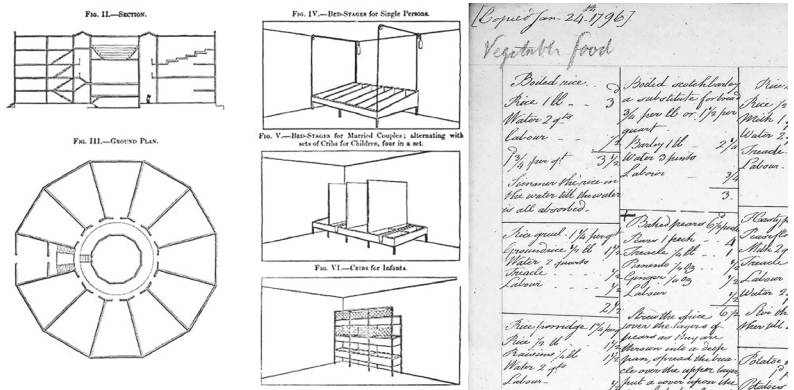 FIG. II.—SECTION.
FIG. III.—GROUND PLAN.
FIG. IV.—BED-STAGES for Single Persons.
FIG. V.—BED-STAGES for Married Couples; alternating with
sets of Cribs for Children, four in a set.
FIG. VI.—CRIBS for Infants.
[Copied Jan. 24th 1796].
Vegetable food
Boiled rice
Rice 1 lb - - 3
Water 2 qts
Labour - - 1/2
3 1/2
Simmer the rice in
the water till the water
is all absorbed.
Rice gruel 1 1/4 per qt
Groundrice 1/2 lb 1 1/2
Water 2 quarts
Treacle 1/2
Labour 1/2
2 1/2
Rice porridge
Rice 1/2 lb 1 1/2
Raisins
Water 2 qts
Labour
Boiled scotch barley
a substitute for bread
3/4 per lb or 1 1/2 per
quart.
Barley 1 lb 2 1/4
Water 3 pints
Labour 3/4
3.
Baked pears
Pears 1 peck - 4
Treacle
Pimento
Ginger
Labour 1/2
6 1/2
Strew the spice
over the layers of
pears as they are
thrown into a deep
pan, spread the trea-
cle over the upper layer
put a cover upon the
Rice
Rice
Milk
Water 2
Treacle
Labour
Treacle
Labour
Water 2
Potatoe
Potatoes